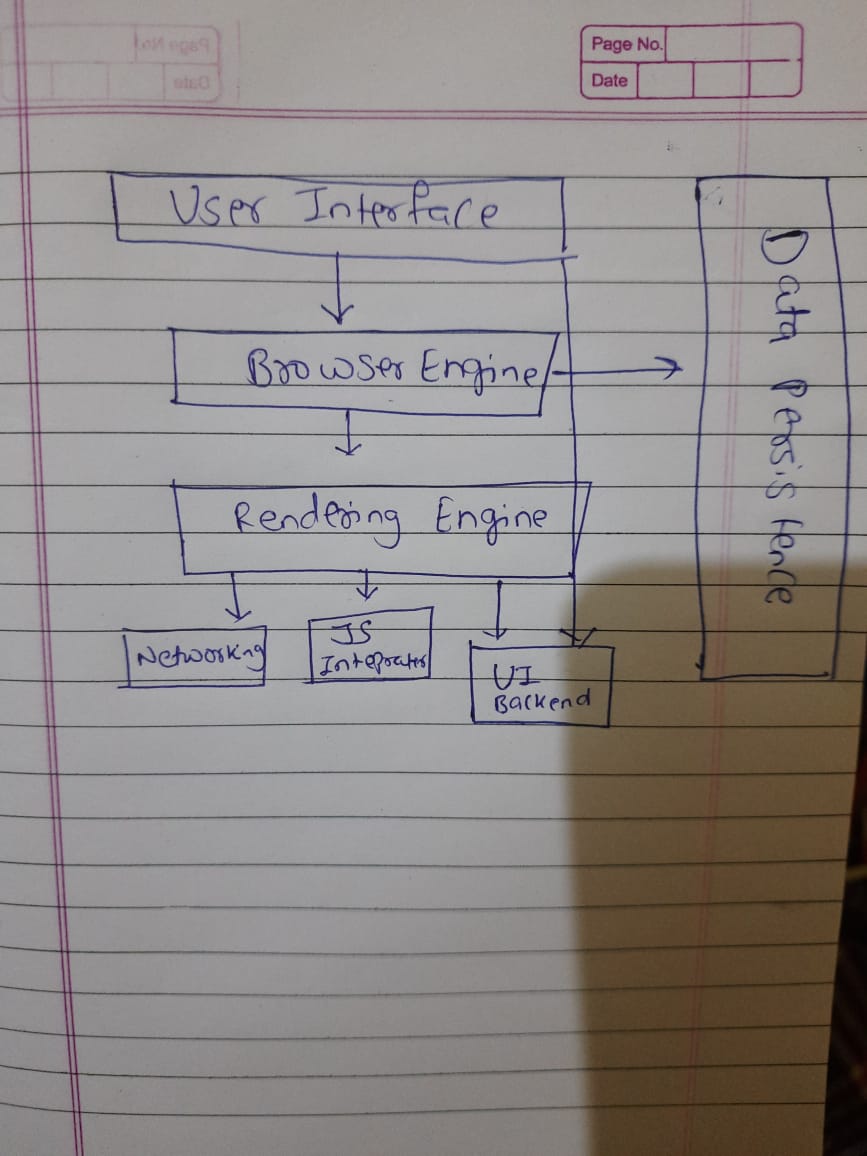 Page No.
Date
User Interface
Browser Engine
Rendering Engine
Networking
JS
Inteprater
UI
Backend
Data Persistence